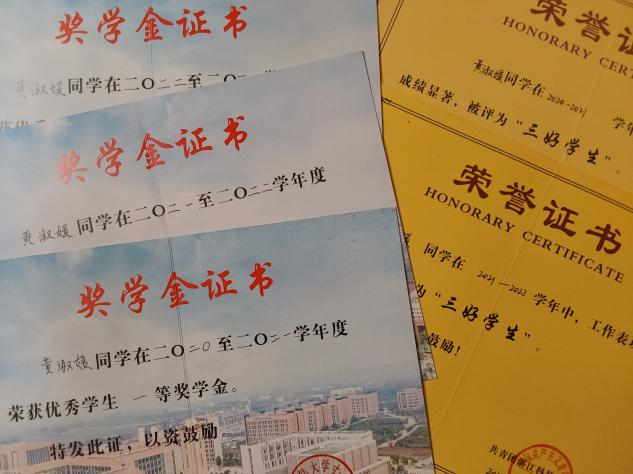 奖学金证书
黄淑媛同学在二〇二二至二〇二
奖学金证书
黄淑媛同学在二〇二一至二〇二二学年度
奖学金证书
黄淑媛同学在二〇二〇至二〇二一学年度
荣获优秀学生 一等奖学金。
特发此证，以资鼓励
荣誉证
HONORARY CERTIFIC
黄淑媛同学在2020-2021 学年
成绩显著，被评为“三好学生”。
荣誉证书
HONORARY CERTIFICATE
媛 同学在 2021—2022 学年中，工作表
为“三好学生”。
鼓励！
共青团湛江科